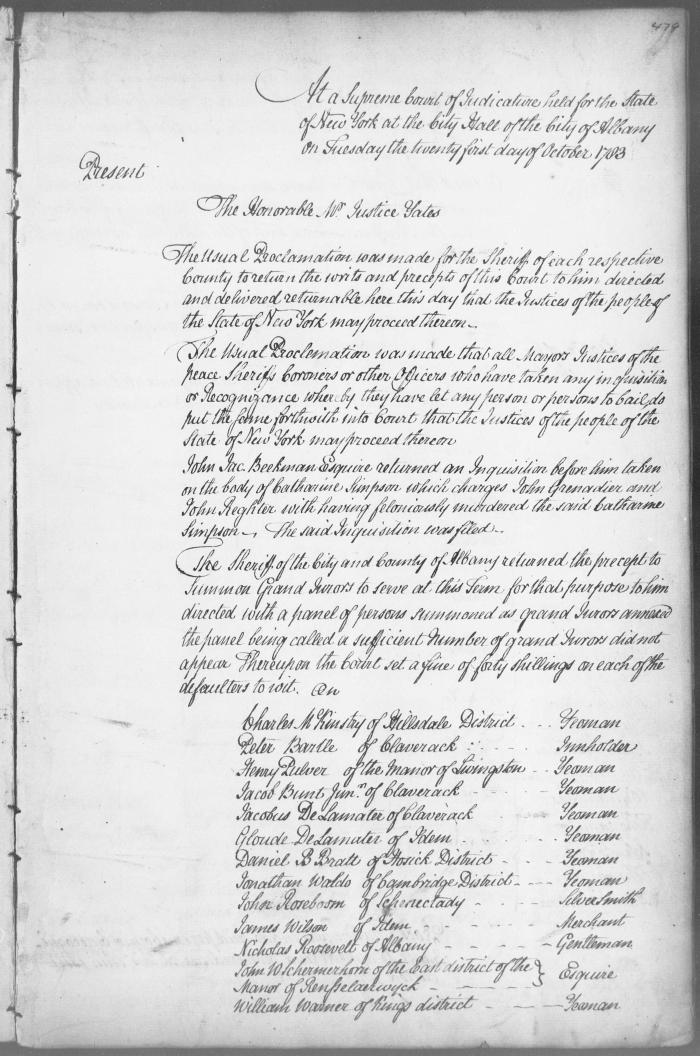 479
At a Supreme Court of Judicature held for the State
of New York at the City Hall of the City of Albany
on Tuesday the twenty first day of October 1783
Present
The Honorable Mr. Justice Yates
The Usual Proclamation was made for the Sheriff of each respective
County to return the writs and precepts of this Court to him directed
and delivered returnable here this day that the Justices of the people of
the State of New York may proceed thereon
The Usual Proclamation was made that all Mayors Justices of the
peace Sheriffs Coroners or other Officers who have taken any inquisition
or Recognizance where by they have let any person or persons to bail, do
put the same forthwith into Court that the Justices of the people of the
State of New York may proceed thereon
John Jac. Beekman Esquire returned an Inquisition before him taken
on the body of Catharine Simpson which charges John Grenadier and
John Reghter with having feloniously murdered the said Catharine
Simpson — The said Inquisition was filed —
The Sheriff of the City and County of Albany returned the precept to
Summon Grand Jurors to serve at this Term for that purpose to him
directed with a panel of persons summoned as grand Jurors annexed
the panel being called a sufficient number of grand Jurors did not
appear Thereupon the Court set a fine of forty shillings on each of the
defaulters to wit. on
Charles McKinstry of Hillsdale District - - - Yeoman
Peter Bartle of Claverack - - - Innholder
Henry Pulver of the Manor of Livingston - - Yeoman
Jacob Bunt Junr. of Claverack - - - Yeoman
Jacobus DeLamater of Claverack - Yeoman
Cloude DeLamater of Idem - - - Yeoman
Daniel B Bratt of Hosick District - - - Yeoman
Jonathan Waldo of Cambridge District - - - Yeoman
John Roseboom of Schenectady - - - Silver Smith
James Wilson of Idem - - - Merchant
Nicholas Roosevelt of Albany - - - Gentleman
John W Schermerhorn of the East district of the } Esquire
Manor of Rensselaerwyck - - -
William Warner of Kings district - - - Yeoman